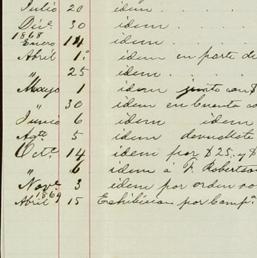 Julio 20 idem . . .
Dice. 30 idem . . .
1868
Enero 14 idem . . .
Abril 1º idem . . en parte de
" 25 idem . . .
Mayo 1 idem junto con $
" 30 idem en cuenta co
Junio 6 idem idem
Agto 5 idem
Octe. 14 idem por $25. y $
" 6 idem á F. Robertson
Nove. 3 idem por orden
1869
Abril 15 por